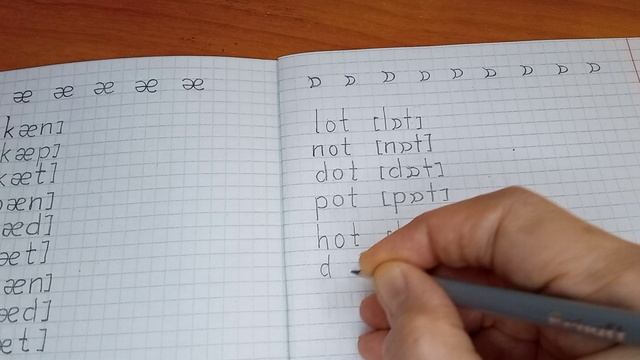 æ æ æ æ æ
kæn]
kæp]
kæt]
æn]
æd]
æt]
æn]
æd]
æt]
ɒ ɒ ɒ ɒ ɒ ɒ ɒ ɒ ɒ
lot [lɒt]
not [nɒt]
dot [dɒt]
pot [pɒt]
hot [
d